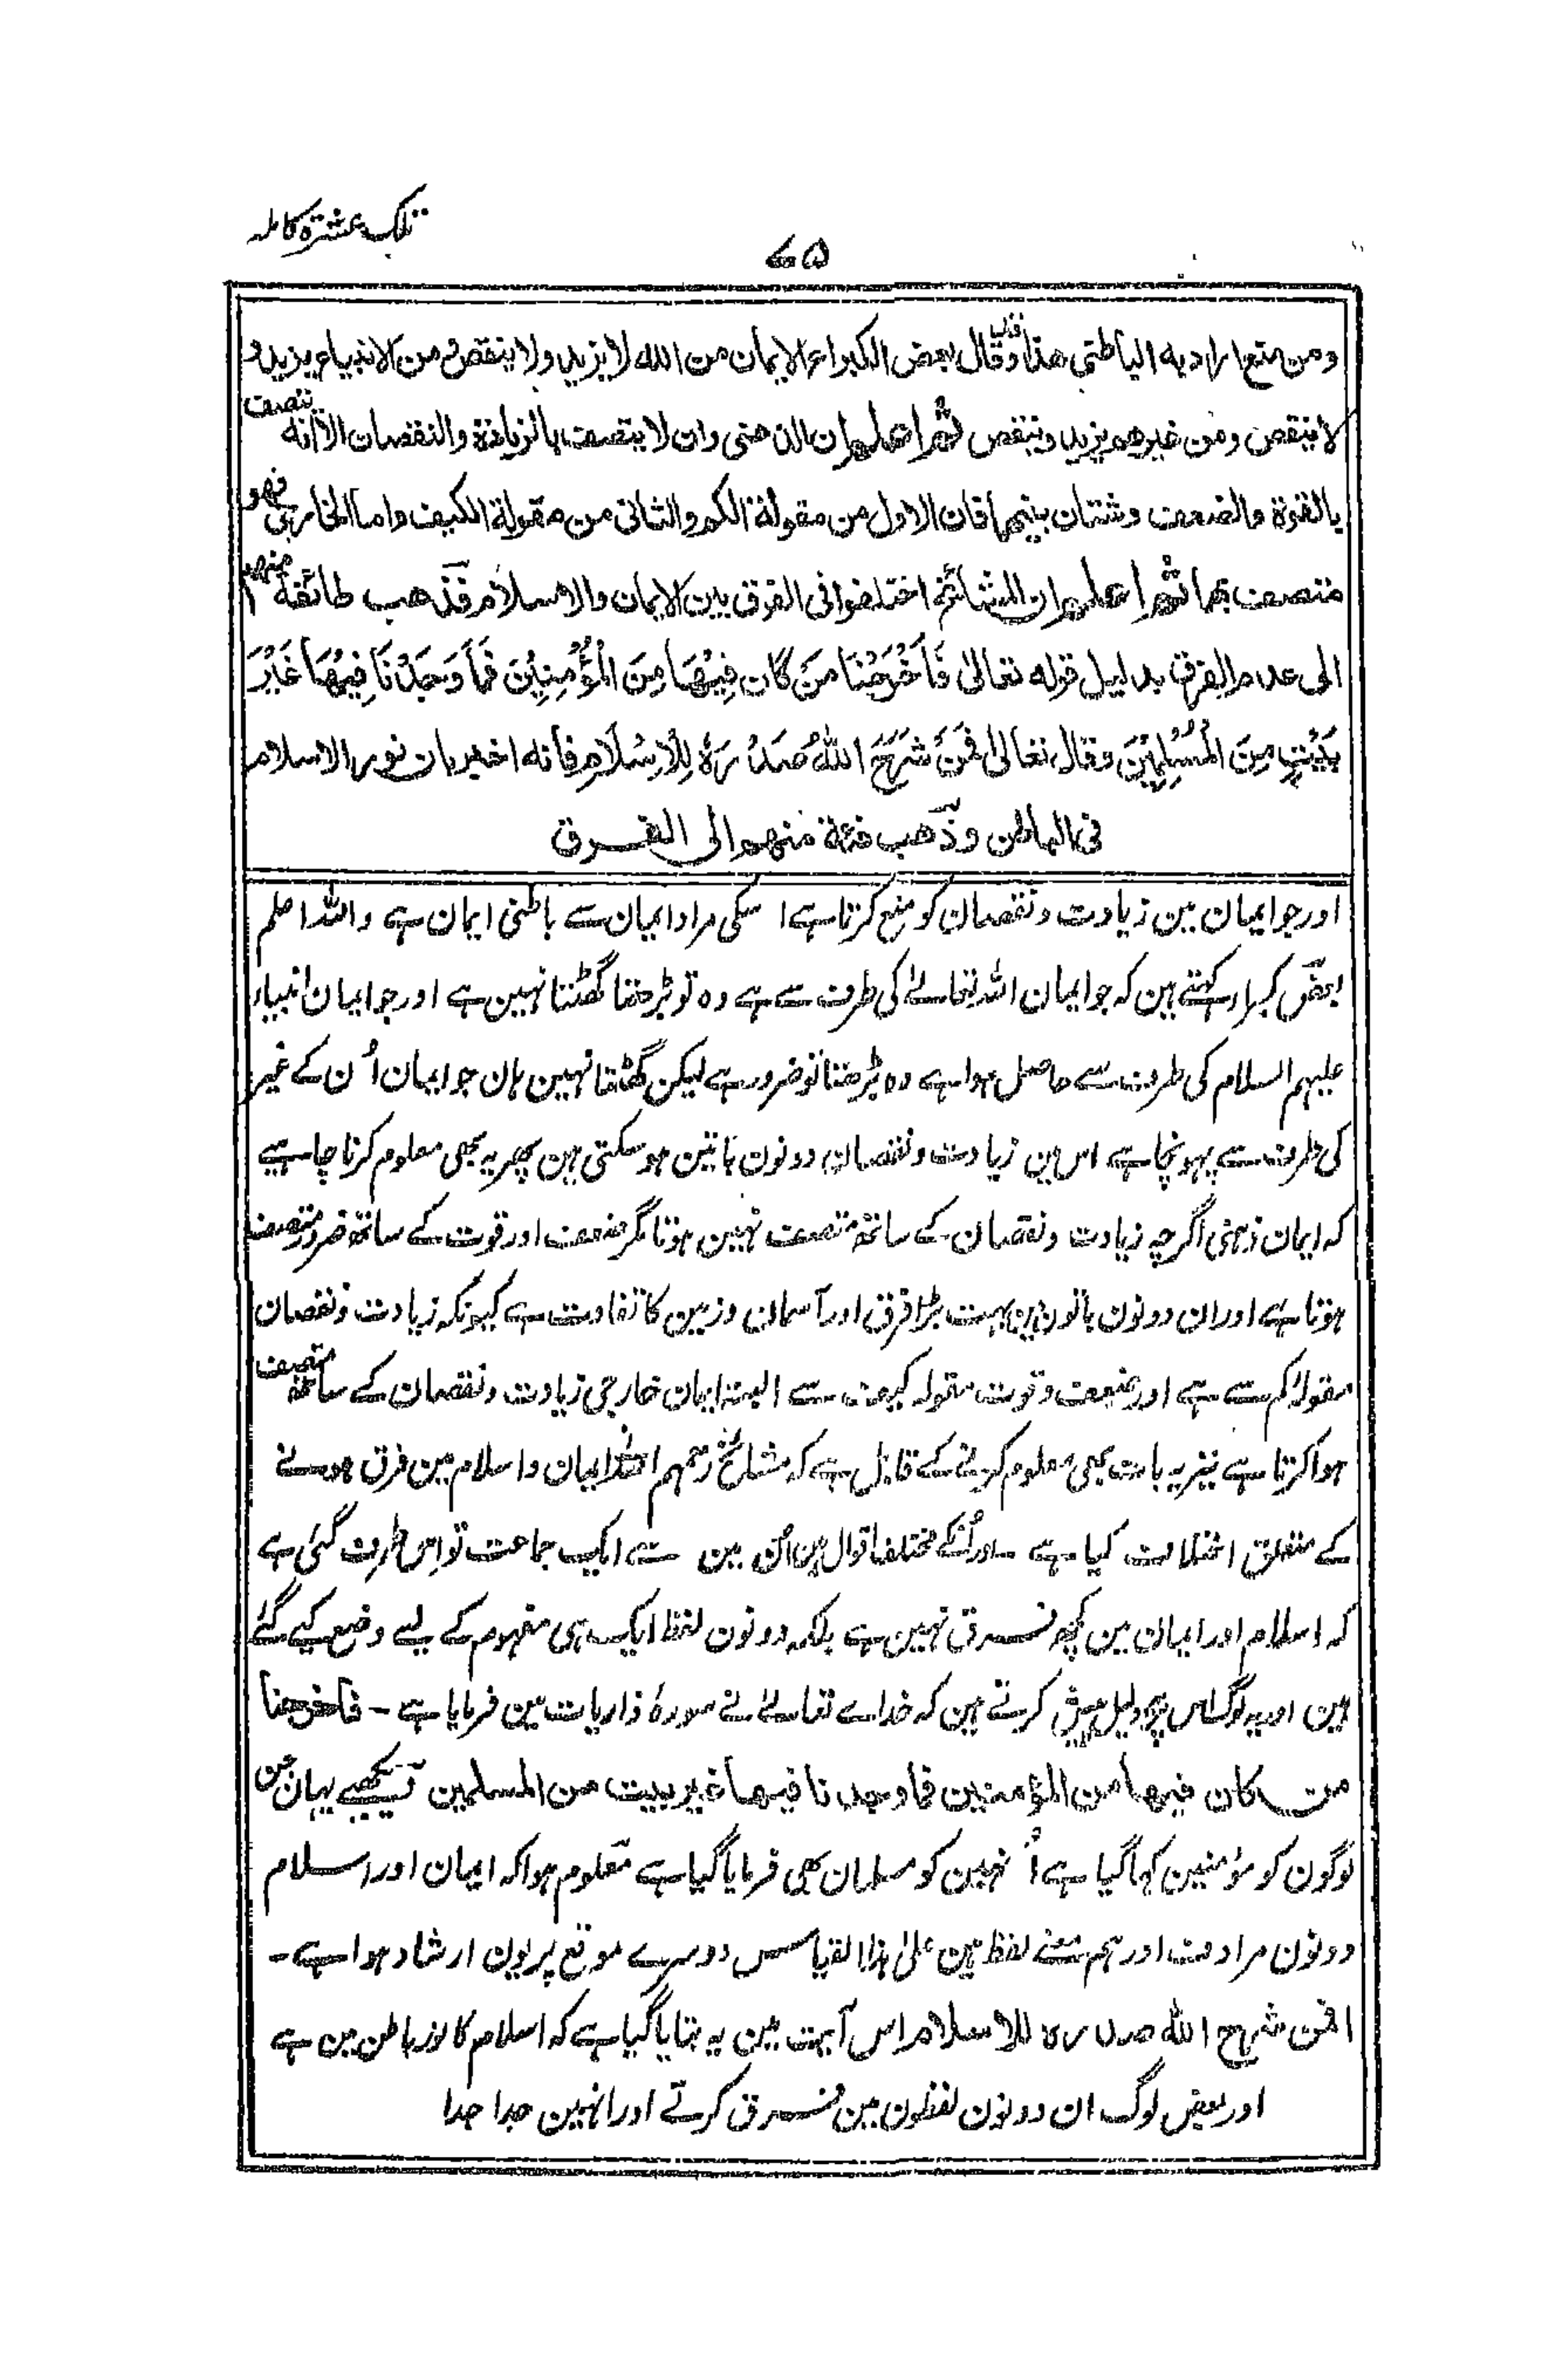 تلک عشرة کاملہ
۷۵
ومن منع اراد به الباطنی هذا وقال بعض الکبراء الایمان من الله لا یزید ولا ینقص ومن الانبیاء یزید و
لا ینقص ومن غیرهم یزید وینقص ثم اعلم ان الذهنی وان لا یتصف بالزیادة والنقصان الا انه یتصف
بالقوة والضعف وشتان بینهما فان الاول من مقولة الکم والثانی من مقولة الکیف واما الخارجی فهو
متصف بهما ثم اعلم ان المشائخ اختلفوا فی الفرق بین الایمان والاسلام فذهب طائفة منهم
الی عدم الفرق بدلیل قوله تعالیٰ فَاَخْرَجْنَا مَنْ كَانَ فِيْهَا مِنَ الْمُؤْمِنِيْنَ فَمَا وَجَدْنَا فِيْهَا غَيْرَ
بَيْتٍ مِنَ الْمُسْلِمِيْنَ وقال تعالیٰ فَمَنْ شَرَحَ اللهُ صَدْرَهٗ لِلْاِسْلَامِ فانه اخبر بان نور الاسلام
فی الباطن وذهب فئة منهم الی الفرق
اور جو ایمان مین زیادت ونقصان کو منع کرتا ہے اسکی مراد ایمان سے باطنی ایمان ہے واللہ اعلم
بعض کبراء کہتے ہین کہ جو ایمان اللہ تعالےٰ کی طرف سے ہے وہ تو بڑھتا گھٹتا نہین ہے اور جو ایمان انبیاء
علیہم السلام کی طرف سے حاصل ہوا ہے وہ بڑھتا تو ضرور ہے لیکن گھٹتا نہین ہان جو ایمان اُن کے غیر
کی طرف سے پہونچا ہے اس مین زیادت ونقصان دونون باتین ہوسکتی ہین پھر یہ بھی معلوم کرنا چاہیے
کہ ایمان ذہنی اگرچہ زیادت ونقصان کے ساتھ متصف نہین ہوتا مگر ضعف اور قوت کے ساتھ ضرور متصف
ہوتا ہے اور ان دونون باتون مین بہت بڑا فرق اور آسمان وزمین کا تفاوت ہے کیونکہ زیادت ونقصان
مقولۂ کم سے ہے اور ضعف وقوت مقولہ کیف سے البتہ ایمان خارجی زیادت ونقصان کے ساتھ متصف
ہوا کرتا ہے نیز یہ بات بھی معلوم کرنے کے قابل ہے کہ مشائخ رحمہم اللہ ایمان واسلام مین فرق ہونے
کے متعلق اختلاف کیا ہے اور اُنکے مختلف اقوال ہین اُن مین سے ایک جماعت تو اس طرف گئی ہے
کہ اسلام اور ایمان مین کچھ فرق نہین ہے بلکہ دونون لفظ ایک ہی مفہوم کے لیے وضع کیے گئے
ہین اور یہ لوگ اس پر دلیل پیش کرتے ہین کہ خداے تعالےٰ نے سورۂ ذاریات مین فرمایا ہے - فاخرجنا
من کان فیها من المؤمنین فما وجدنا فیها غیر بیت من المسلمین دیکھیے یہان جن
لوگون کو مؤمنین کہا گیا ہے اُنہین کو مسلمان بھی فرمایا گیا ہے معلوم ہوا کہ ایمان اور اسلام
دونون مرادف اور ہم معنے لفظ ہین علیٰ ہذا القیاس دوسرے موقع پر یون ارشاد ہوا ہے -
افمن شرح الله صدره للاسلام اس آیت مین یہ بتایا گیا ہے کہ اسلام کا نور باطن مین ہے
اور بعض لوگ ان دونون لفظون مین فرق کرتے اور انہین جدا جدا